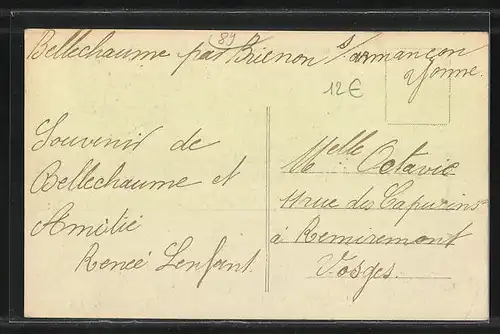 Bellechaume par Brienon s/ armançon
(89)
Yonne.
12€
Souvenir de
Bellechaume et
Amitié
Renée Lenfant.
Melle Octavie
11 rue des Capucins
à Remiremont
Vosges.